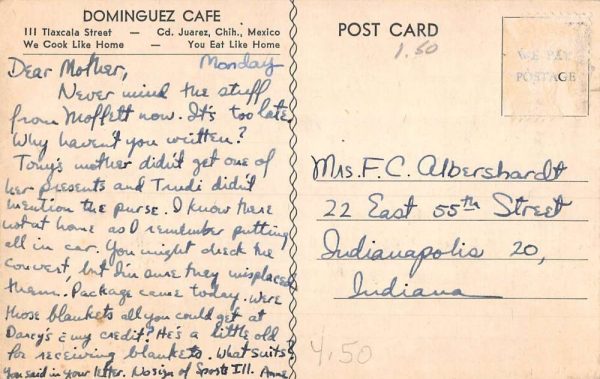 DOMINGUEZ CAFE
111 Tlaxcala Street — Cd. Juarez, Chih., Mexico
We Cook Like Home — You Eat Like Home
Dear Mother, Monday
Never mind the stuff
from Moffett now. It's too late.
Why haven't you written?
Tony's mother didn't get one of
her presents and Trudi didn't
mention the purse. I know there
not at home as I remember putting
all in car. You might check the
convert, but I'm sure they misplaced
them. Package came today. Were
those blankets all you could get at
Darcy's & my credit? He's a little old
for receiving blankets. What suits?
You said in your letter. No sign of Sports Ill. Anne
POST CARD
1.50
WE PAY
POSTAGE
Mrs. F. C. Albershardt
22 East 55th Street
Indianapolis 20,
Indiana
4.50